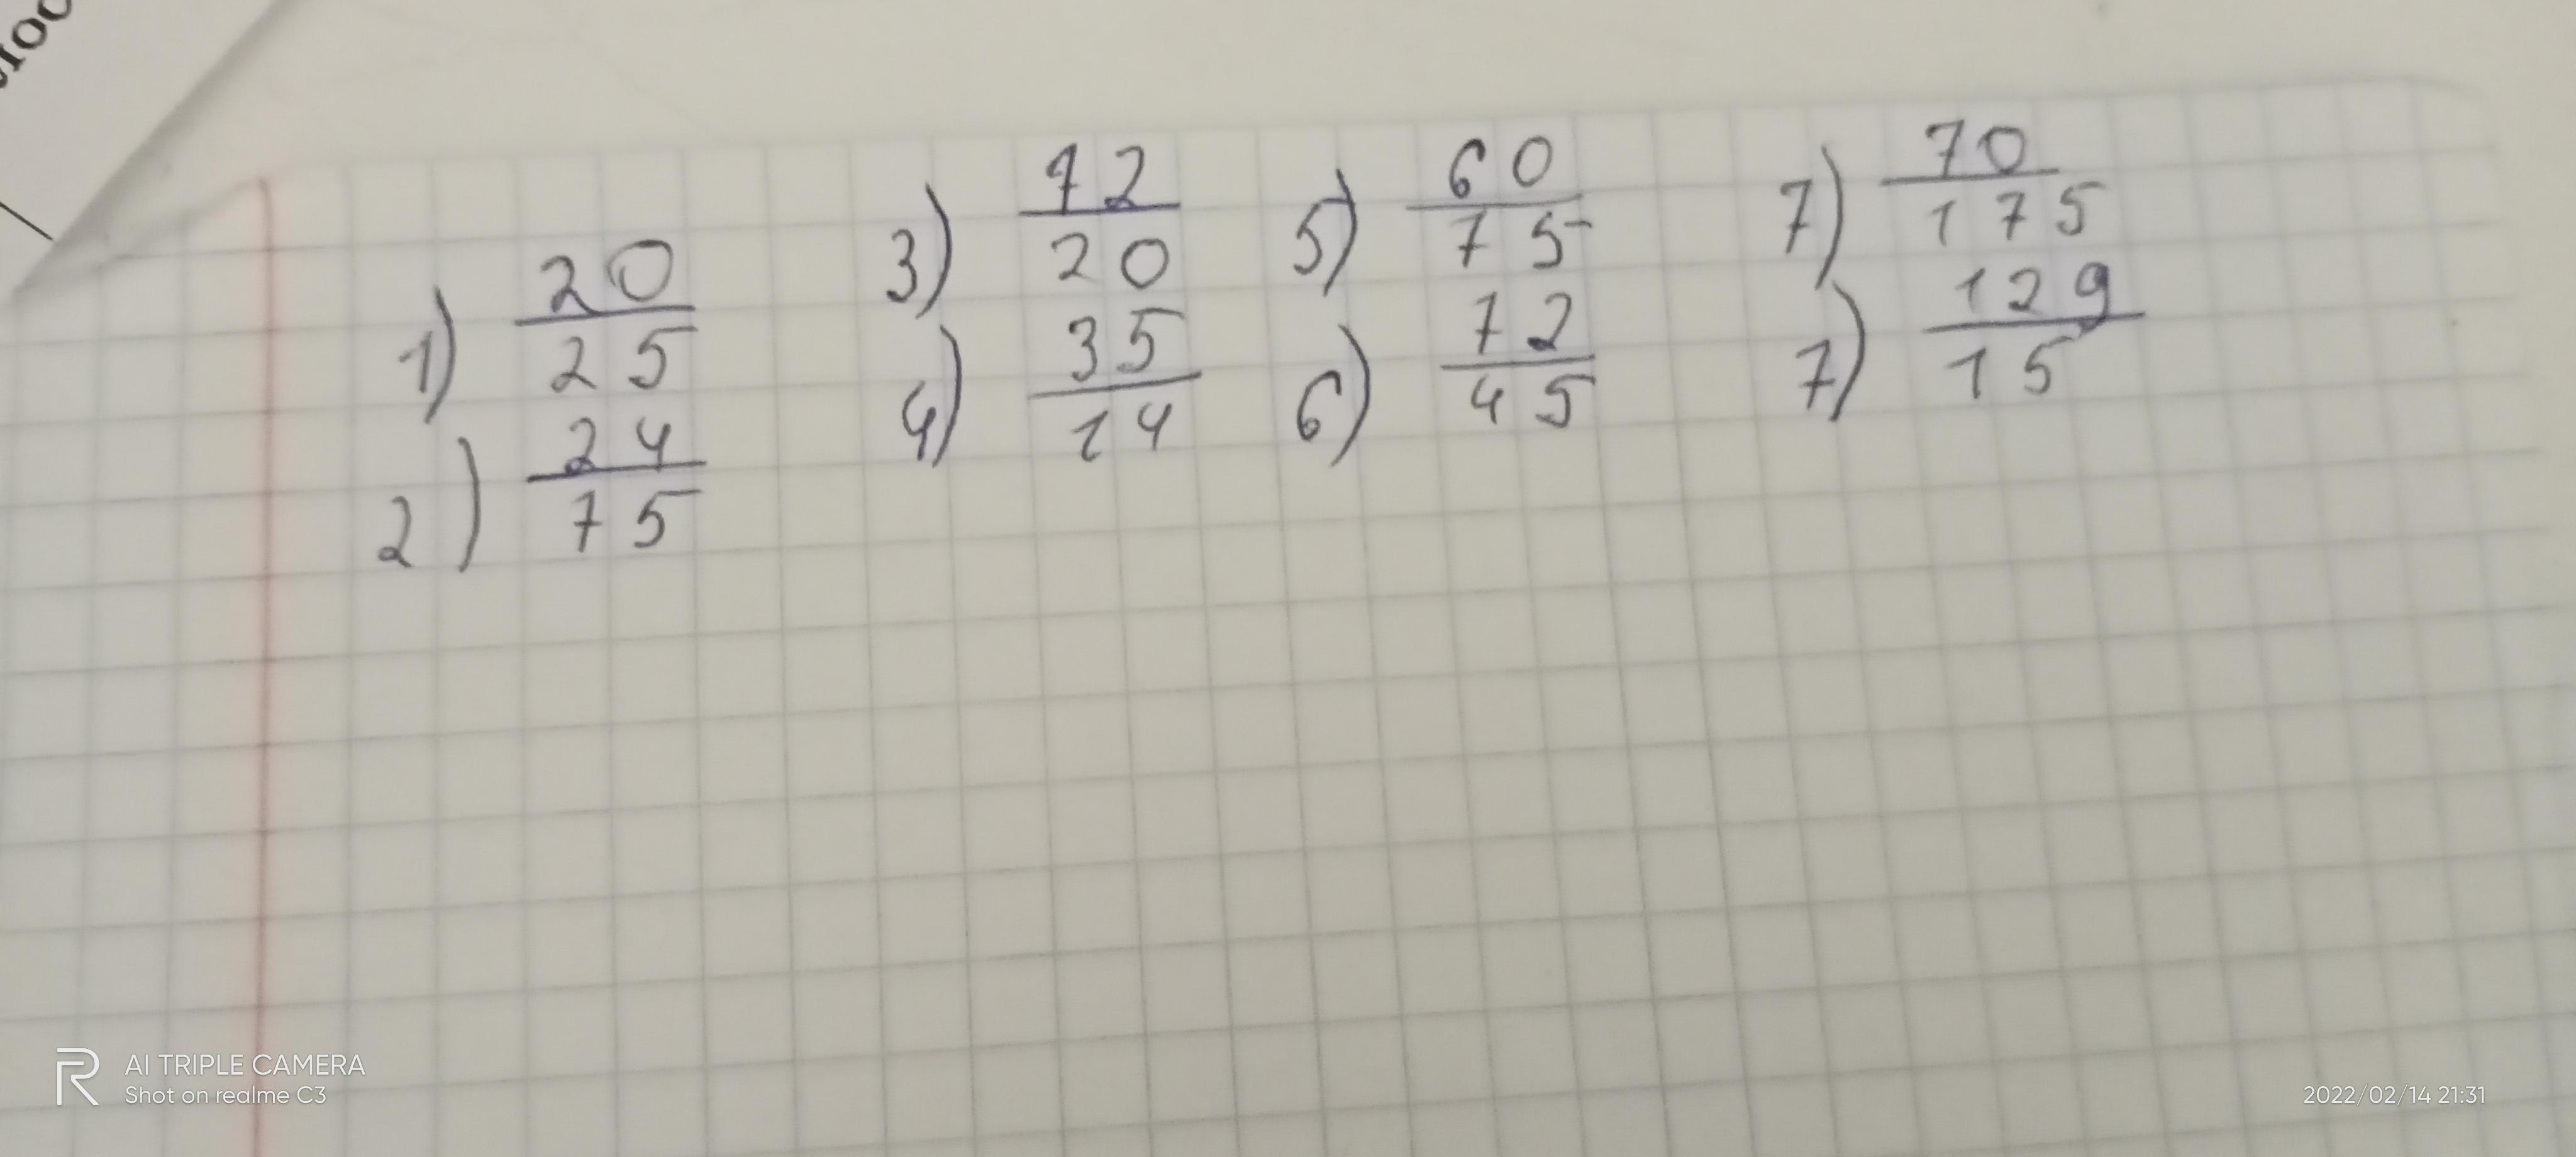 1) 20/25
2) 24/75
3) 12/20
4) 35/14
5) 60/75
6) 72/45
7) 70/175
7) 129/15
AI TRIPLE CAMERA
Shot on realme C3
2022/02/14 21:31